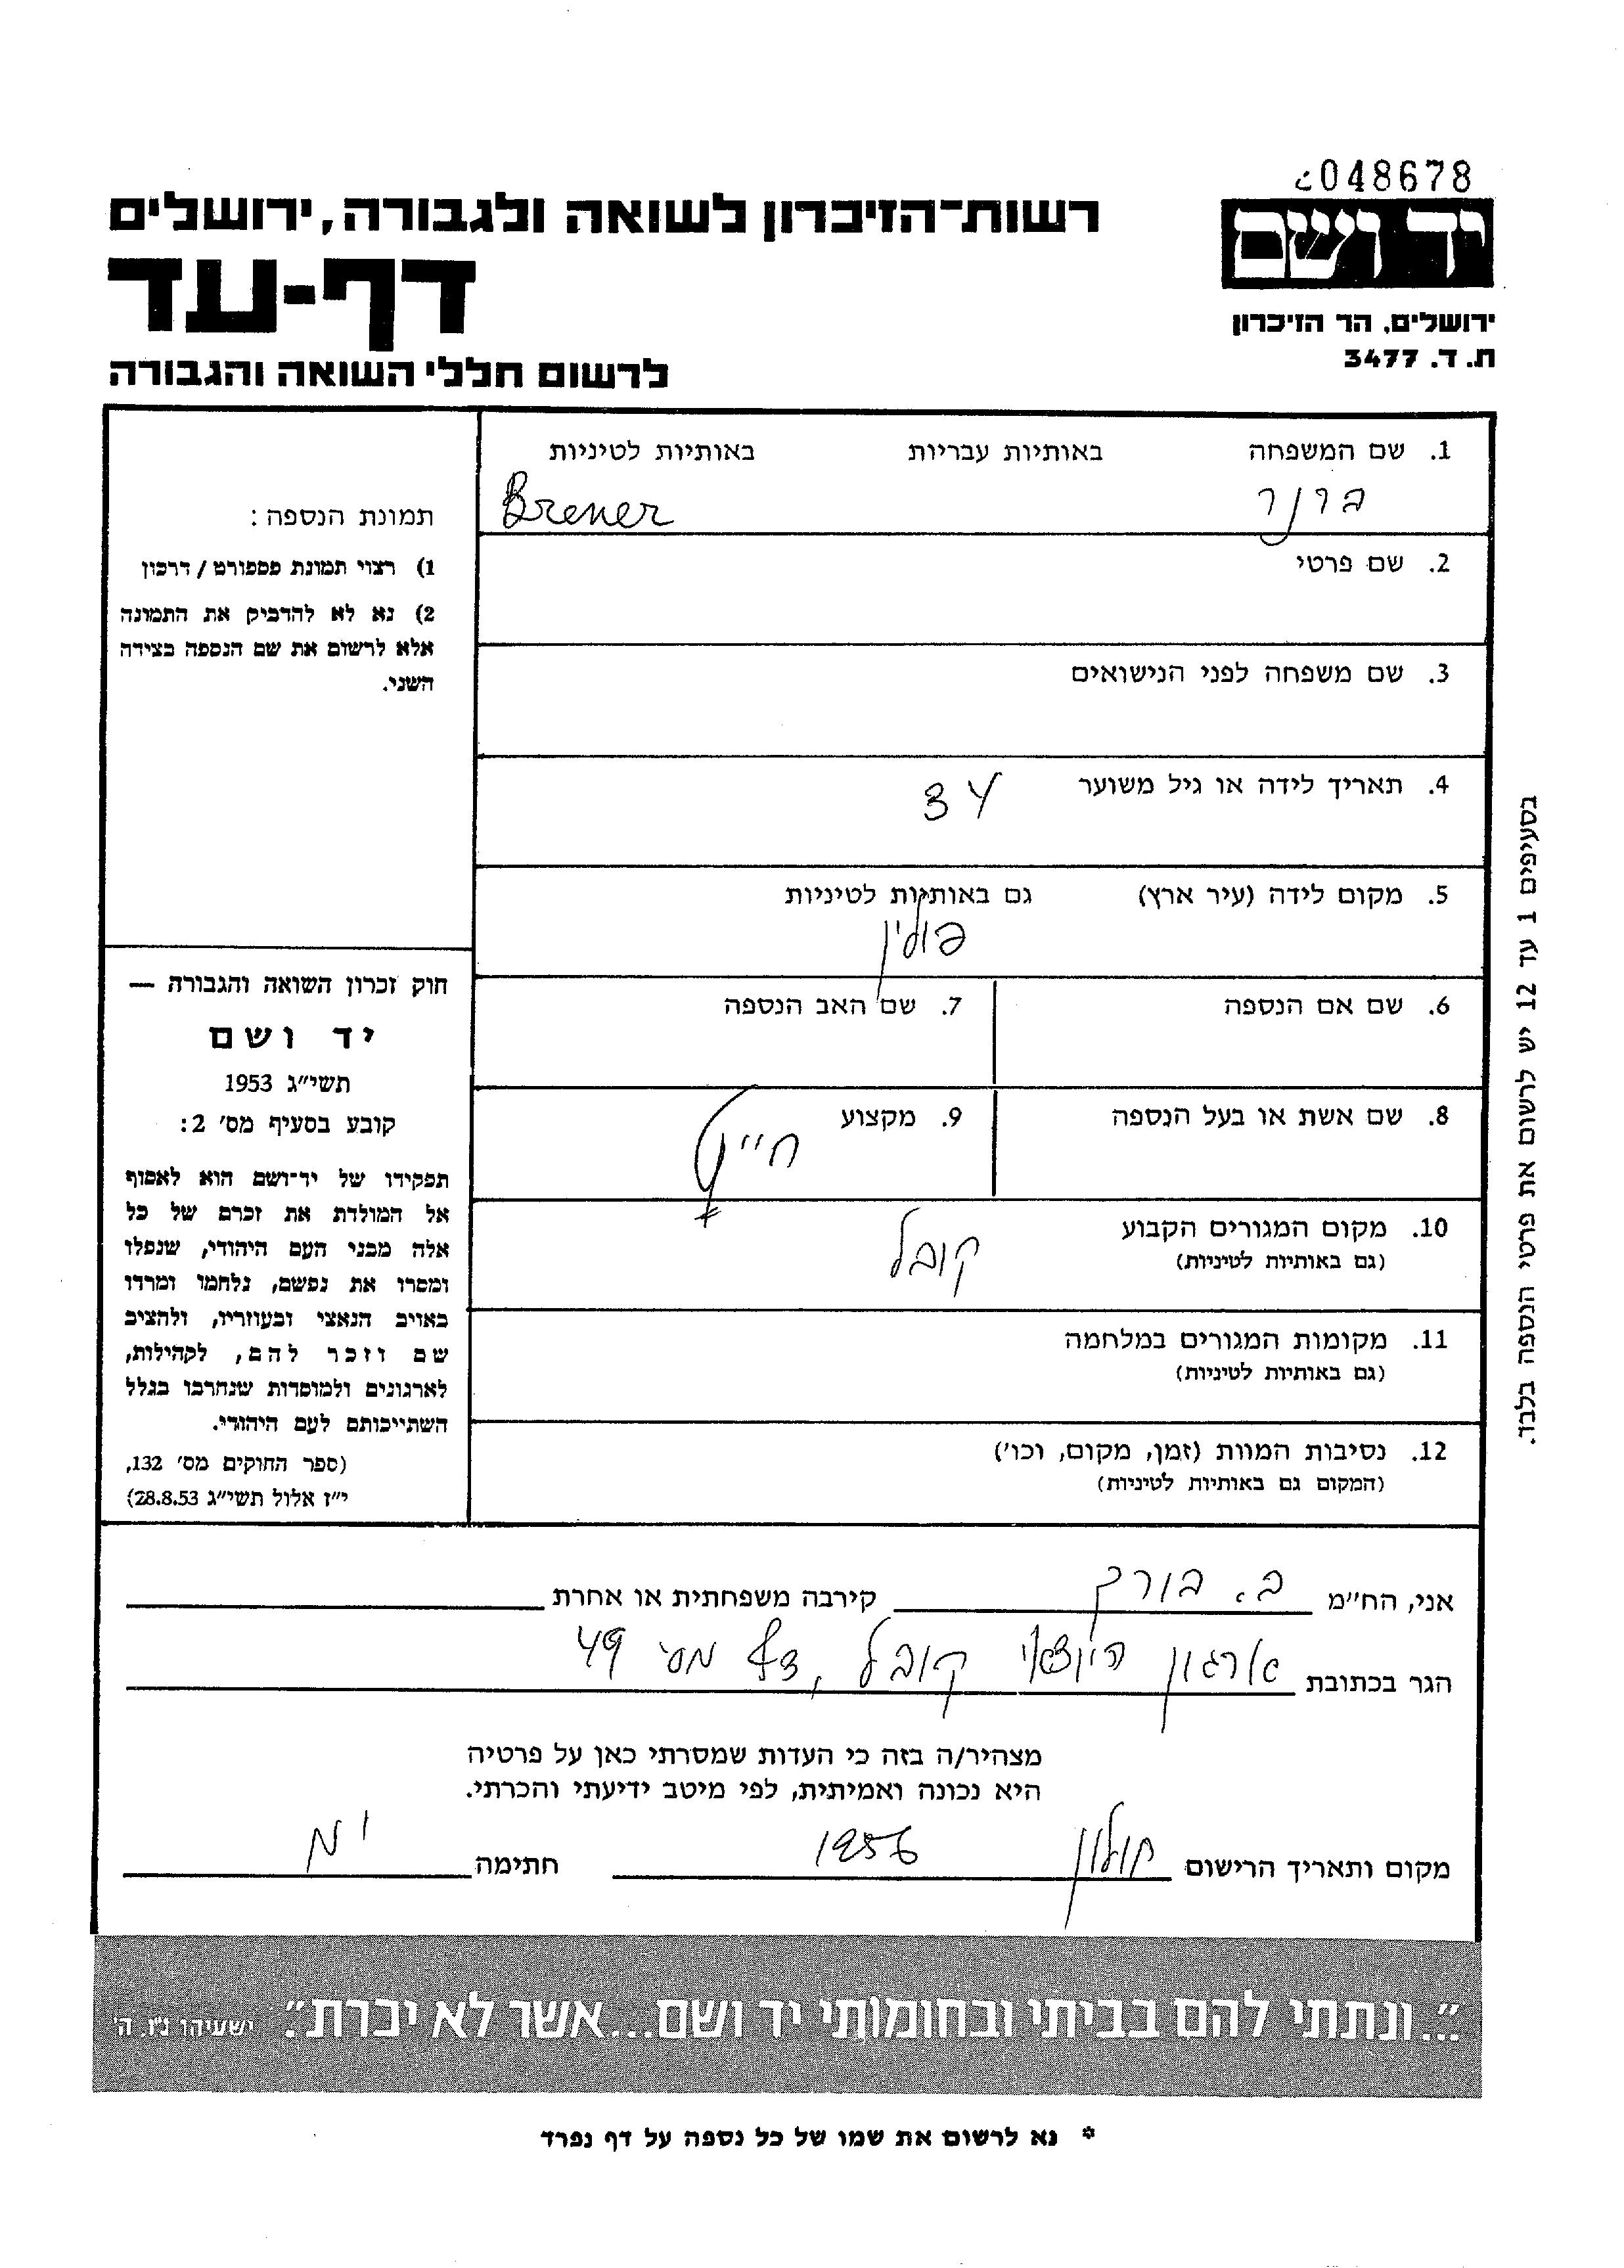 048678
יד ושם
ירושלים, הר הזיכרון
ת. ד. 3477
רשות־הזיכרון לשואה ולגבורה, ירושלים
דף-עד
לרשום חללי השואה והגבורה
1. שם המשפחה באותיות עבריות באותיות לטיניות
ברנר Brener
2. שם פרטי
3. שם משפחה לפני הנישואים
4. תאריך לידה או גיל משוער
34
5. מקום לידה (עיר ארץ) גם באותיות לטיניות
פולין
6. שם אם הנספה 7. שם האב הנספה
8. שם אשת או בעל הנספה 9. מקצוע
חייט
10. מקום המגורים הקבוע
(גם באותיות לטיניות)
קובל
11. מקומות המגורים במלחמה
(גם באותיות לטיניות)
12. נסיבות המוות (זמן, מקום, וכו')
(המקום גם באותיות לטיניות)
תמונת הנספה:
1) רצוי תמונת פספורט / דרכון
2) נא לא להדביק את התמונה
אלא לרשום את שם הנספה בצידה
השני.
חוק זכרון השואה והגבורה —
יד ושם
תשי"ג 1953
קובע בסעיף מס' 2:
תפקידו של יד־ושם הוא לאסוף
אל המולדת את זכרם של כל
אלה מבני העם היהודי, שנפלו
ומסרו את נפשם, נלחמו ומרדו
באויב הנאצי ובעוזריו, ולהציב
שם וזכר להם, לקהילות,
לארגונים ולמוסדות שנחרבו בגלל
השתייכותם לעם היהודי.
(ספר החוקים מס' 132,
י"ז אלול תשי"ג 28.8.53)
בסעיפים 1 עד 12 יש לרשום את פרטי הנספה בלבד.
אני, הח"מ ב. בורק קירבה משפחתית או אחרת
הגר בכתובת ארגון היוצאי קובל, דף מס' 49
מצהיר/ה בזה כי העדות שמסרתי כאן על פרטיה
היא נכונה ואמיתית, לפי מיטב ידיעתי והכרתי.
מקום ותאריך הרישום חולון 1956 חתימה
"...ונתתי להם בביתי ובחומותי יד ושם...אשר לא יכרת". ישעיהו נ"ו, ה'
* נא לרשום את שמו של כל נספה על דף נפרד